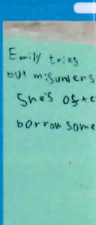 Emily tries
but misunders
She's ofte
borrow some